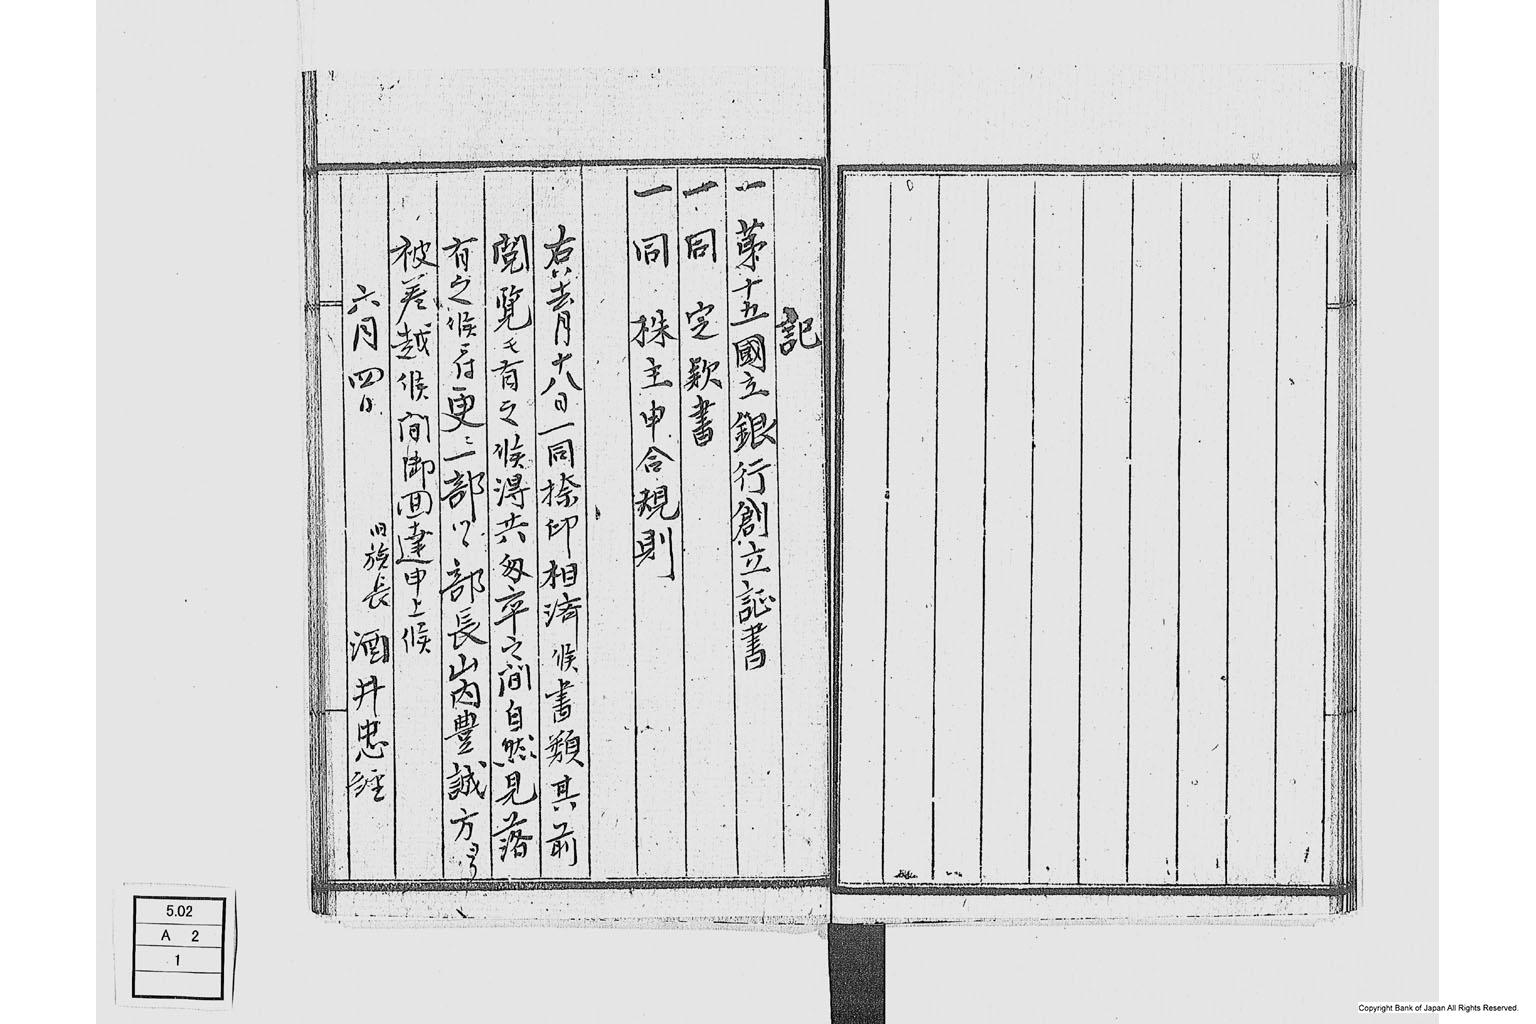 記
一 第十五國立銀行創立証書
一 同 定款書
一 同 株主申合規則
右ハ去月十八日一同捺印相済候書類其前
閲覧モ有之候得共匆卒之間自然見落
有之候ニ付更ニ一部ツヽ部長山内豊誠方ヨリ
被差越候間御回達申上候
六月四日
旧族長 酒井忠
5.02
A 2
1
Copyright Bank of Japan All Rights Reserved.